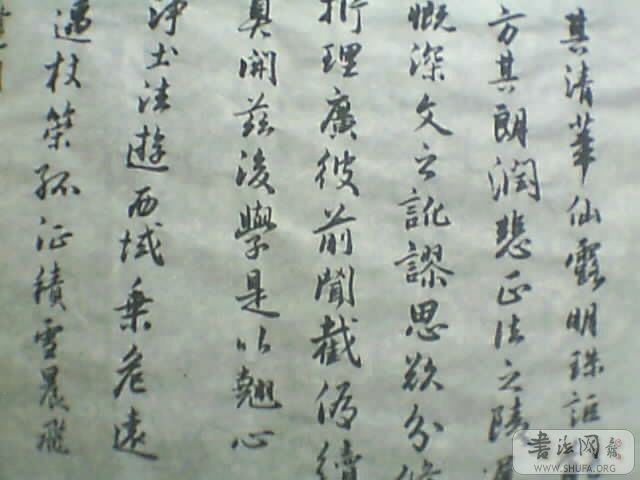 其清華仙露明珠詎能
方其朗潤悲正法之陵
慨深文之訛謬思欲分條
析理廣彼前聞截偽續
真開茲後學是以翹心
淨土法遊西域乘危遠
邁杖策孤征積雪晨飛
書法网
WWW.SHUFA.ORG